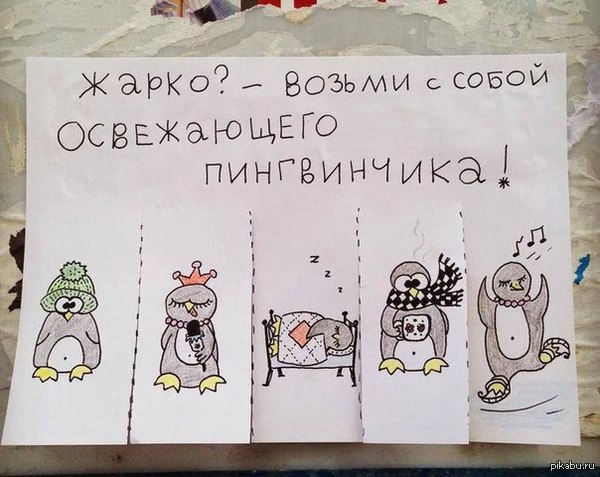 ЖАРКО? - ВОЗЬМИ С СОБОЙ
ОСВЕЖАЮЩЕГО
ПИНГВИНЧИКА!
z
z
z
pikabu.ru